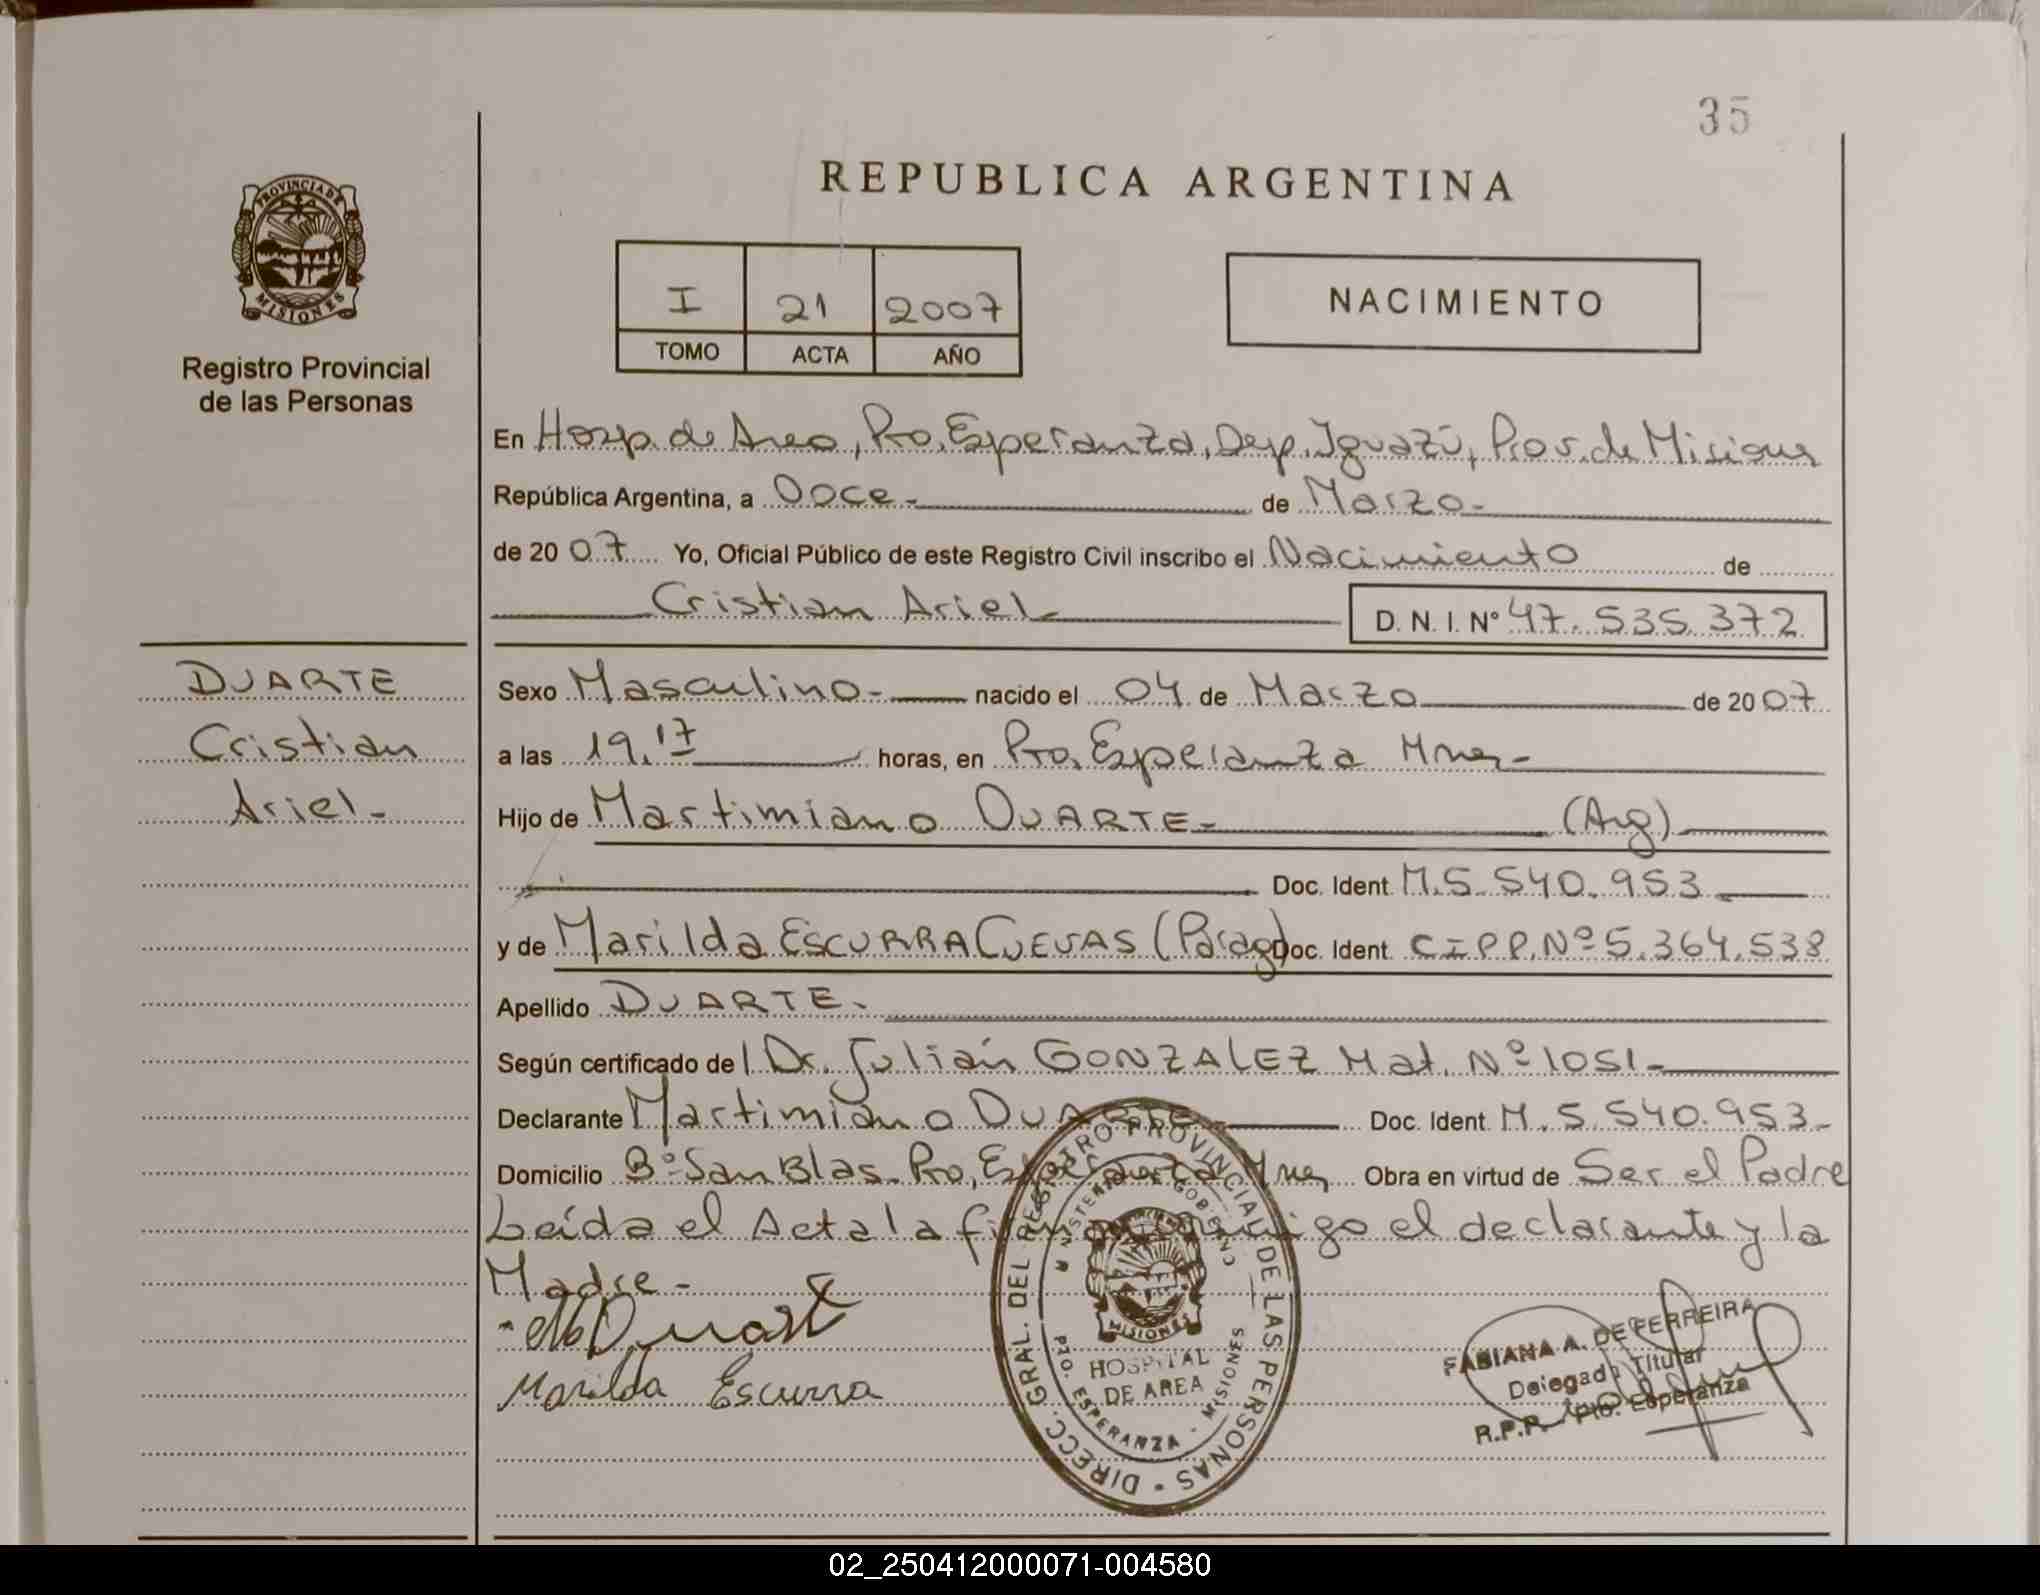 35
REPUBLICA ARGENTINA
PROVINCIA DE
MISIONES
Registro Provincial
de las Personas
I 21 2007
TOMO ACTA AÑO
NACIMIENTO
En Hosp. de Area, Pto. Esperanza, Dep. Iguazú, Prov. de Misiones
República Argentina, a Doce.- de Marzo-
de 20 07 Yo, Oficial Público de este Registro Civil inscribo el Nacimiento de
Cristian Ariel- D. N. I. N° 47.535.372
DUARTE
Cristian
Ariel-
Sexo Masculino- nacido el 04 de Marzo de 20 07
a las 19.17 horas, en Pto. Esperanza Mnes-
Hijo de Martimiano DUARTE- (Arg)
Doc. Ident. M.5.540.953
y de Marilda ESCURRA CUEVAS (Parag) Doc. Ident. C.I.P.P. Nº 5.364.538
Apellido DUARTE-
Según certificado de l Dr. Julián GONZALEZ Mat. Nº 1051-
Declarante Martimiano DUARTE Doc. Ident. M.5.540.953-
Domicilio Bº San Blas. Pto. Esperanza Mnes Obra en virtud de Ser el Padre
Leída el Acta la firman conmigo el declarante y la
Madre-
Marilda Escurra
DIRECC. GRAL. DEL REGISTRO PROVINCIAL DE LAS PERSONAS
MINISTERIO DE GOBIERNO
MISIONES
HOSPITAL
DE AREA
PTO. ESPERANZA - MISIONES
FABIANA A. DE FERREIRA
Delegada Titular
R.P.P. - Pto. Esperanza
02_250412000071-004580